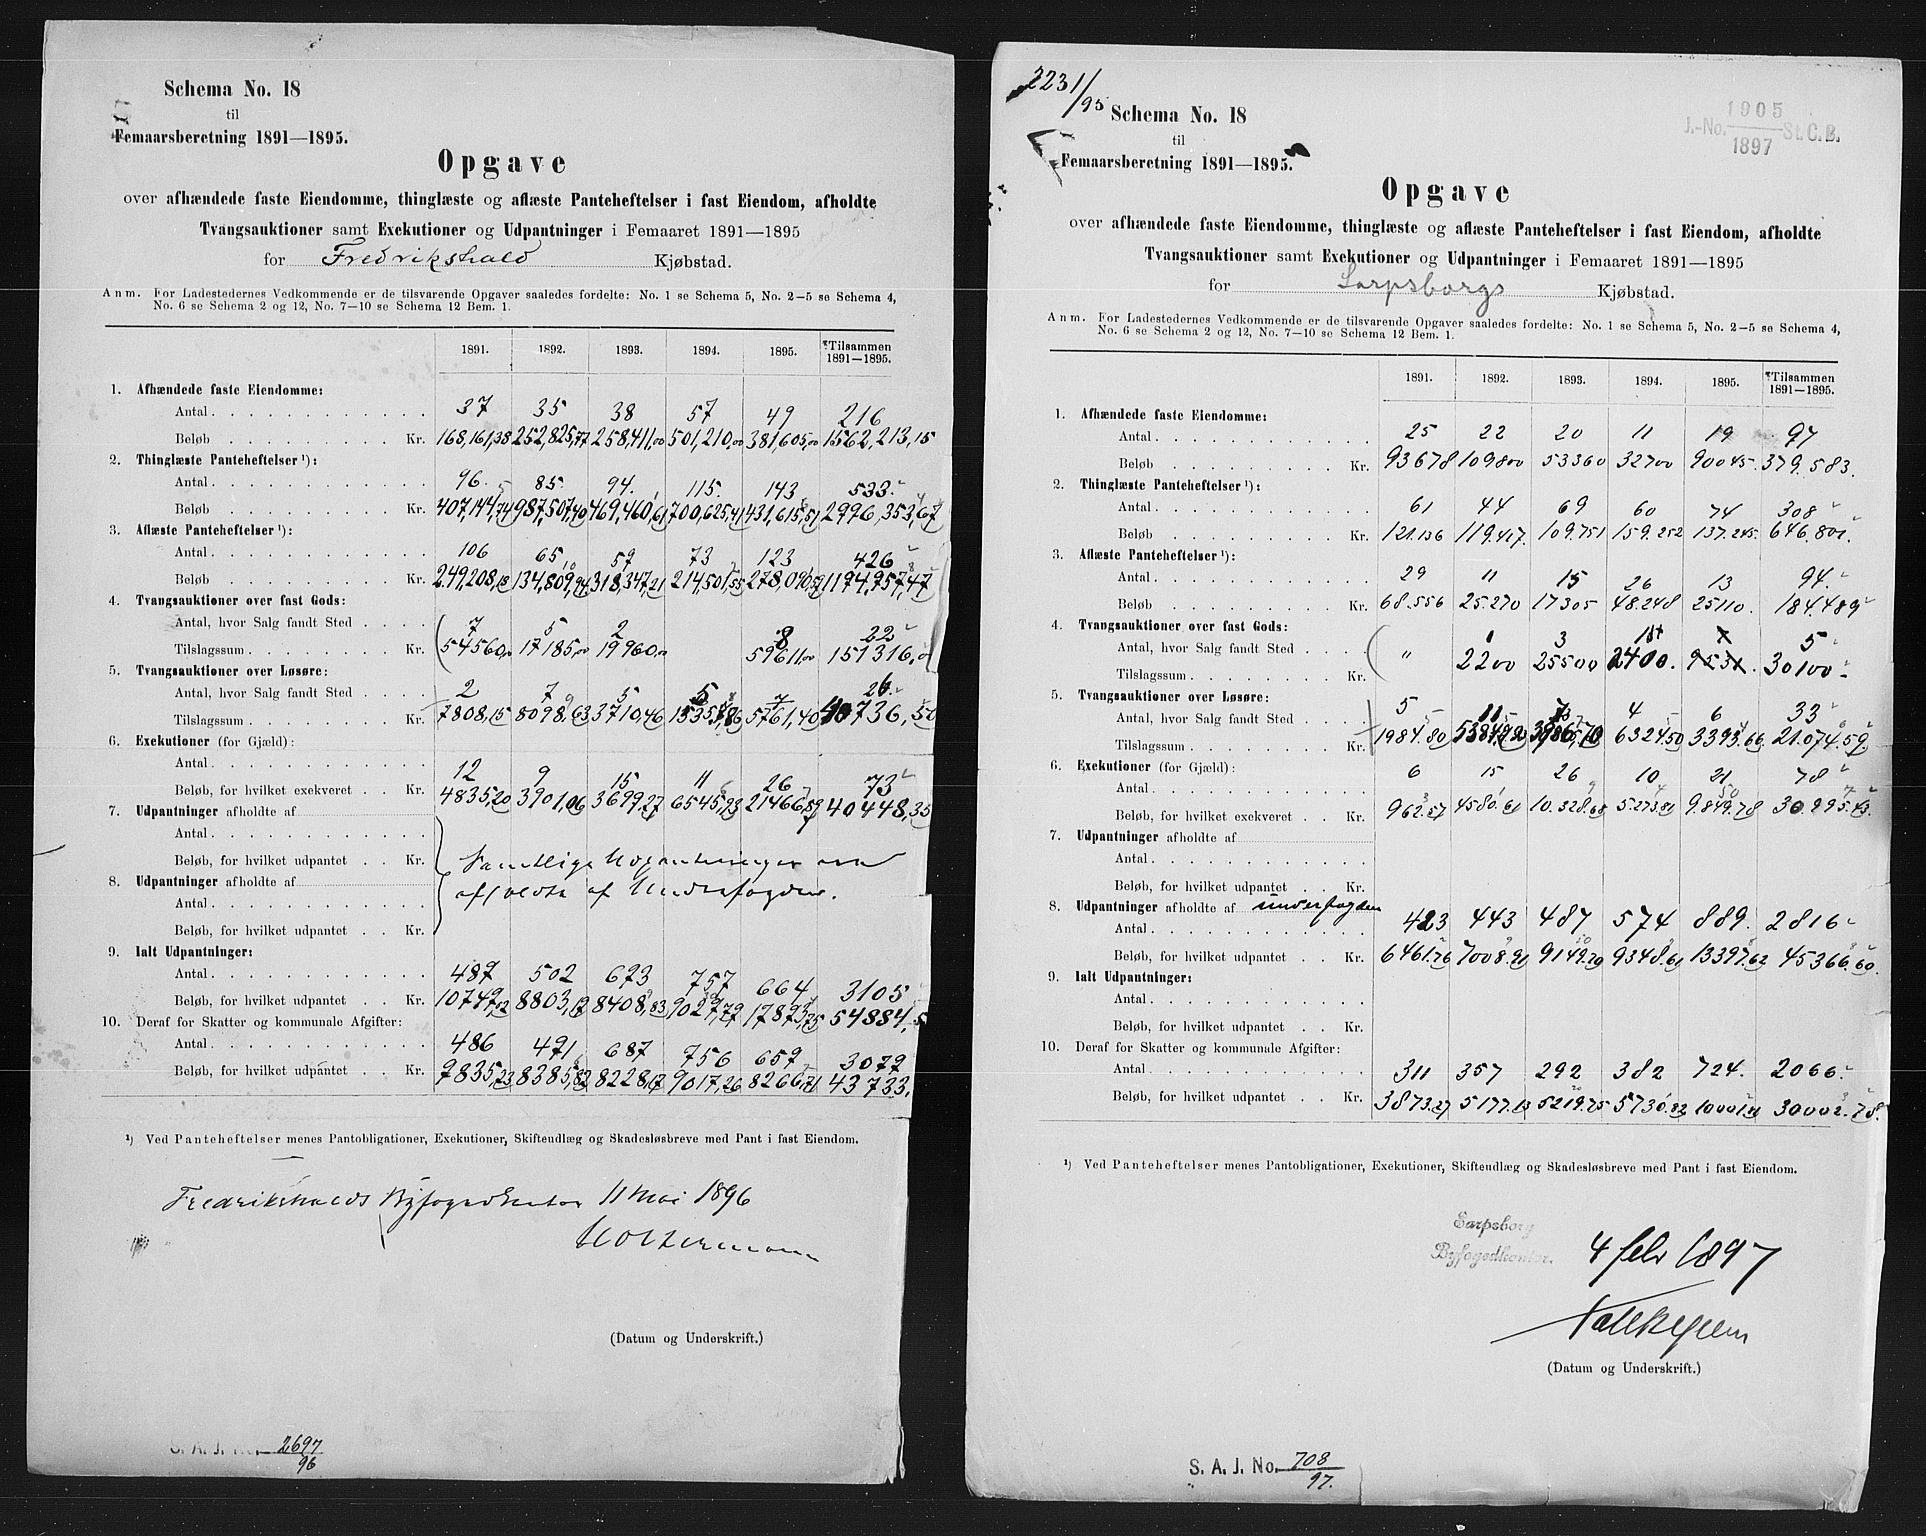 Schema No. 18
til
Femaarsberetning 1891—1895.
Opgave
over afhændede faste Eiendomme, thinglæste og aflæste Panteheftelser i fast Eiendom, afholdte
Tvangsauktioner samt Exekutioner og Udpantninger i Femaaret 1891—1895
for Fredrikshald Kjøbstad.
Anm. For Ladestedernes Vedkommende er de tilsvarende Opgaver saaledes fordelte: No. 1 se Schema 5, No. 2—5 se Schema 4,
No. 6 se Schema 2 og 12, No. 7—10 se Schema 12 Bem. 1.
1891. 1892. 1893. 1894. 1895. Tilsammen 1891—1895.
1. Afhændede faste Eiendomme:
Antal 37 35 38 57 49 216
Beløb Kr. 168,161,38 252,825,77 258,411,00 501,210,00 381,605,00 1562,213,15
2. Thinglæste Panteheftelser¹):
Antal 96. 85. 94. 115. 143 533
Beløb Kr. 407,144,74 987,507,40 469,460,61 700,625,41 431,615,51 2996,353,67
3. Aflæste Panteheftelser¹):
Antal 106 65 59 73 123 426
Beløb Kr. 249,208,18 134,809,94 318,347,21 214,501,55 278,090,59 1194,957,47
4. Tvangsauktioner over fast Gods:
Antal, hvor Salg fandt Sted 7 5 2 8 22
Tilslagssum Kr. 54560,00 17185,00 19960,00 59611,00 151316,00
5. Tvangsauktioner over Løsøre:
Antal, hvor Salg fandt Sted 2 7 5 5 7 26
Tilslagssum Kr. 7808,15 8098,63 3710,46 5761,40
6. Exekutioner (for Gjæld):
Antal 12 9 15 11 26 73
Beløb, for hvilket exekveret Kr. 4835,20 3901,06 3699,27 6545,23 21466,59 40448,35
7. Udpantninger afholdte af
Antal
Beløb, for hvilket udpantet Kr.
Samtlige Udpantninger
8. Udpantninger afholdte af
afholdte af Underfogden.
Antal
Beløb, for hvilket udpantet Kr.
9. Ialt Udpantninger:
Antal 487 502 673 757 664 3105
Beløb, for hvilket udpantet Kr. 10749,12 8803,17 8408,83 9027,79 17893,75 54884,5
10. Deraf for Skatter og kommunale Afgifter:
Antal 486 491 687 756 659 3079
Beløb, for hvilket udpantet Kr. 9835,23 8385,82 8228,17 9017,26 8266,71 43733.
¹) Ved Panteheftelser menes Pantobligationer, Exekutioner, Skifteudlæg og Skadesløsbreve med Pant i fast Eiendom.
Fredrikshalds Byfogedkontor 11 Mai 1896
(Datum og Underskrift.)
S. A. J. No. 2697/96
2231/95
Schema No. 18
til
Femaarsberetning 1891—1895.
J.-No. 1905/1897 St. C. B.
Opgave
over afhændede faste Eiendomme, thinglæste og aflæste Panteheftelser i fast Eiendom, afholdte
Tvangsauktioner samt Exekutioner og Udpantninger i Femaaret 1891—1895
for Sarpsborgs Kjøbstad.
Anm. For Ladestedernes Vedkommende er de tilsvarende Opgaver saaledes fordelte: No. 1 se Schema 5, No. 2—5 se Schema 4,
No. 6 se Schema 2 og 12, No. 7—10 se Schema 12 Bem. 1.
1891. 1892. 1893. 1894. 1895. Tilsammen 1891—1895.
1. Afhændede faste Eiendomme:
Antal 25 22 20 11 19 97
Beløb Kr. 93678 109800 53360 32700 90045. 379.583.
2. Thinglæste Panteheftelser¹):
Antal 61 44 69 60 74 308
Beløb Kr. 121.136 119.417 109.751 159.252 137.245. 646.801.
3. Aflæste Panteheftelser¹):
Antal 29 11 15 26 13 94.
Beløb Kr. 68.556 25.270 17305 48.248 25110. 184.489
4. Tvangsauktioner over fast Gods:
Antal, hvor Salg fandt Sted " 1 3 1 5
Tilslagssum Kr. 2200 25500 2400. 9531. 30100
5. Tvangsauktioner over Løsøre:
Antal, hvor Salg fandt Sted 5 11 7 4 6 33
Tilslagssum Kr. 1984.80 6324.50 3393.66 21.074.59.
6. Exekutioner (for Gjæld):
Antal 6 15 26 10 21 78
Beløb, for hvilket exekveret Kr. 962.57 4580.61 10.328.68 5273.81 9.849.78 30.995.43.
7. Udpantninger afholdte af
Antal
Beløb, for hvilket udpantet Kr.
8. Udpantninger afholdte af underfogden
Antal 423 443 487 574 889. 2816
Beløb, for hvilket udpantet Kr. 6461.76 7008.91 9149.70 9348.61 13397.62 45366.60.
9. Ialt Udpantninger:
Antal
Beløb, for hvilket udpantet Kr.
10. Deraf for Skatter og kommunale Afgifter:
Antal 311 357 292 382 724. 2066.
Beløb, for hvilket udpantet Kr. 3873.27 5177.13 5219.75 5730.82 10001.81 30002.78.
¹) Ved Panteheftelser menes Pantobligationer, Exekutioner, Skifteudlæg og Skadesløsbreve med Pant i fast Eiendom.
Sarpsborg
Byfogedkontor. 4 febr 1897
(Datum og Underskrift.)
S. A. J. No. 708/97.